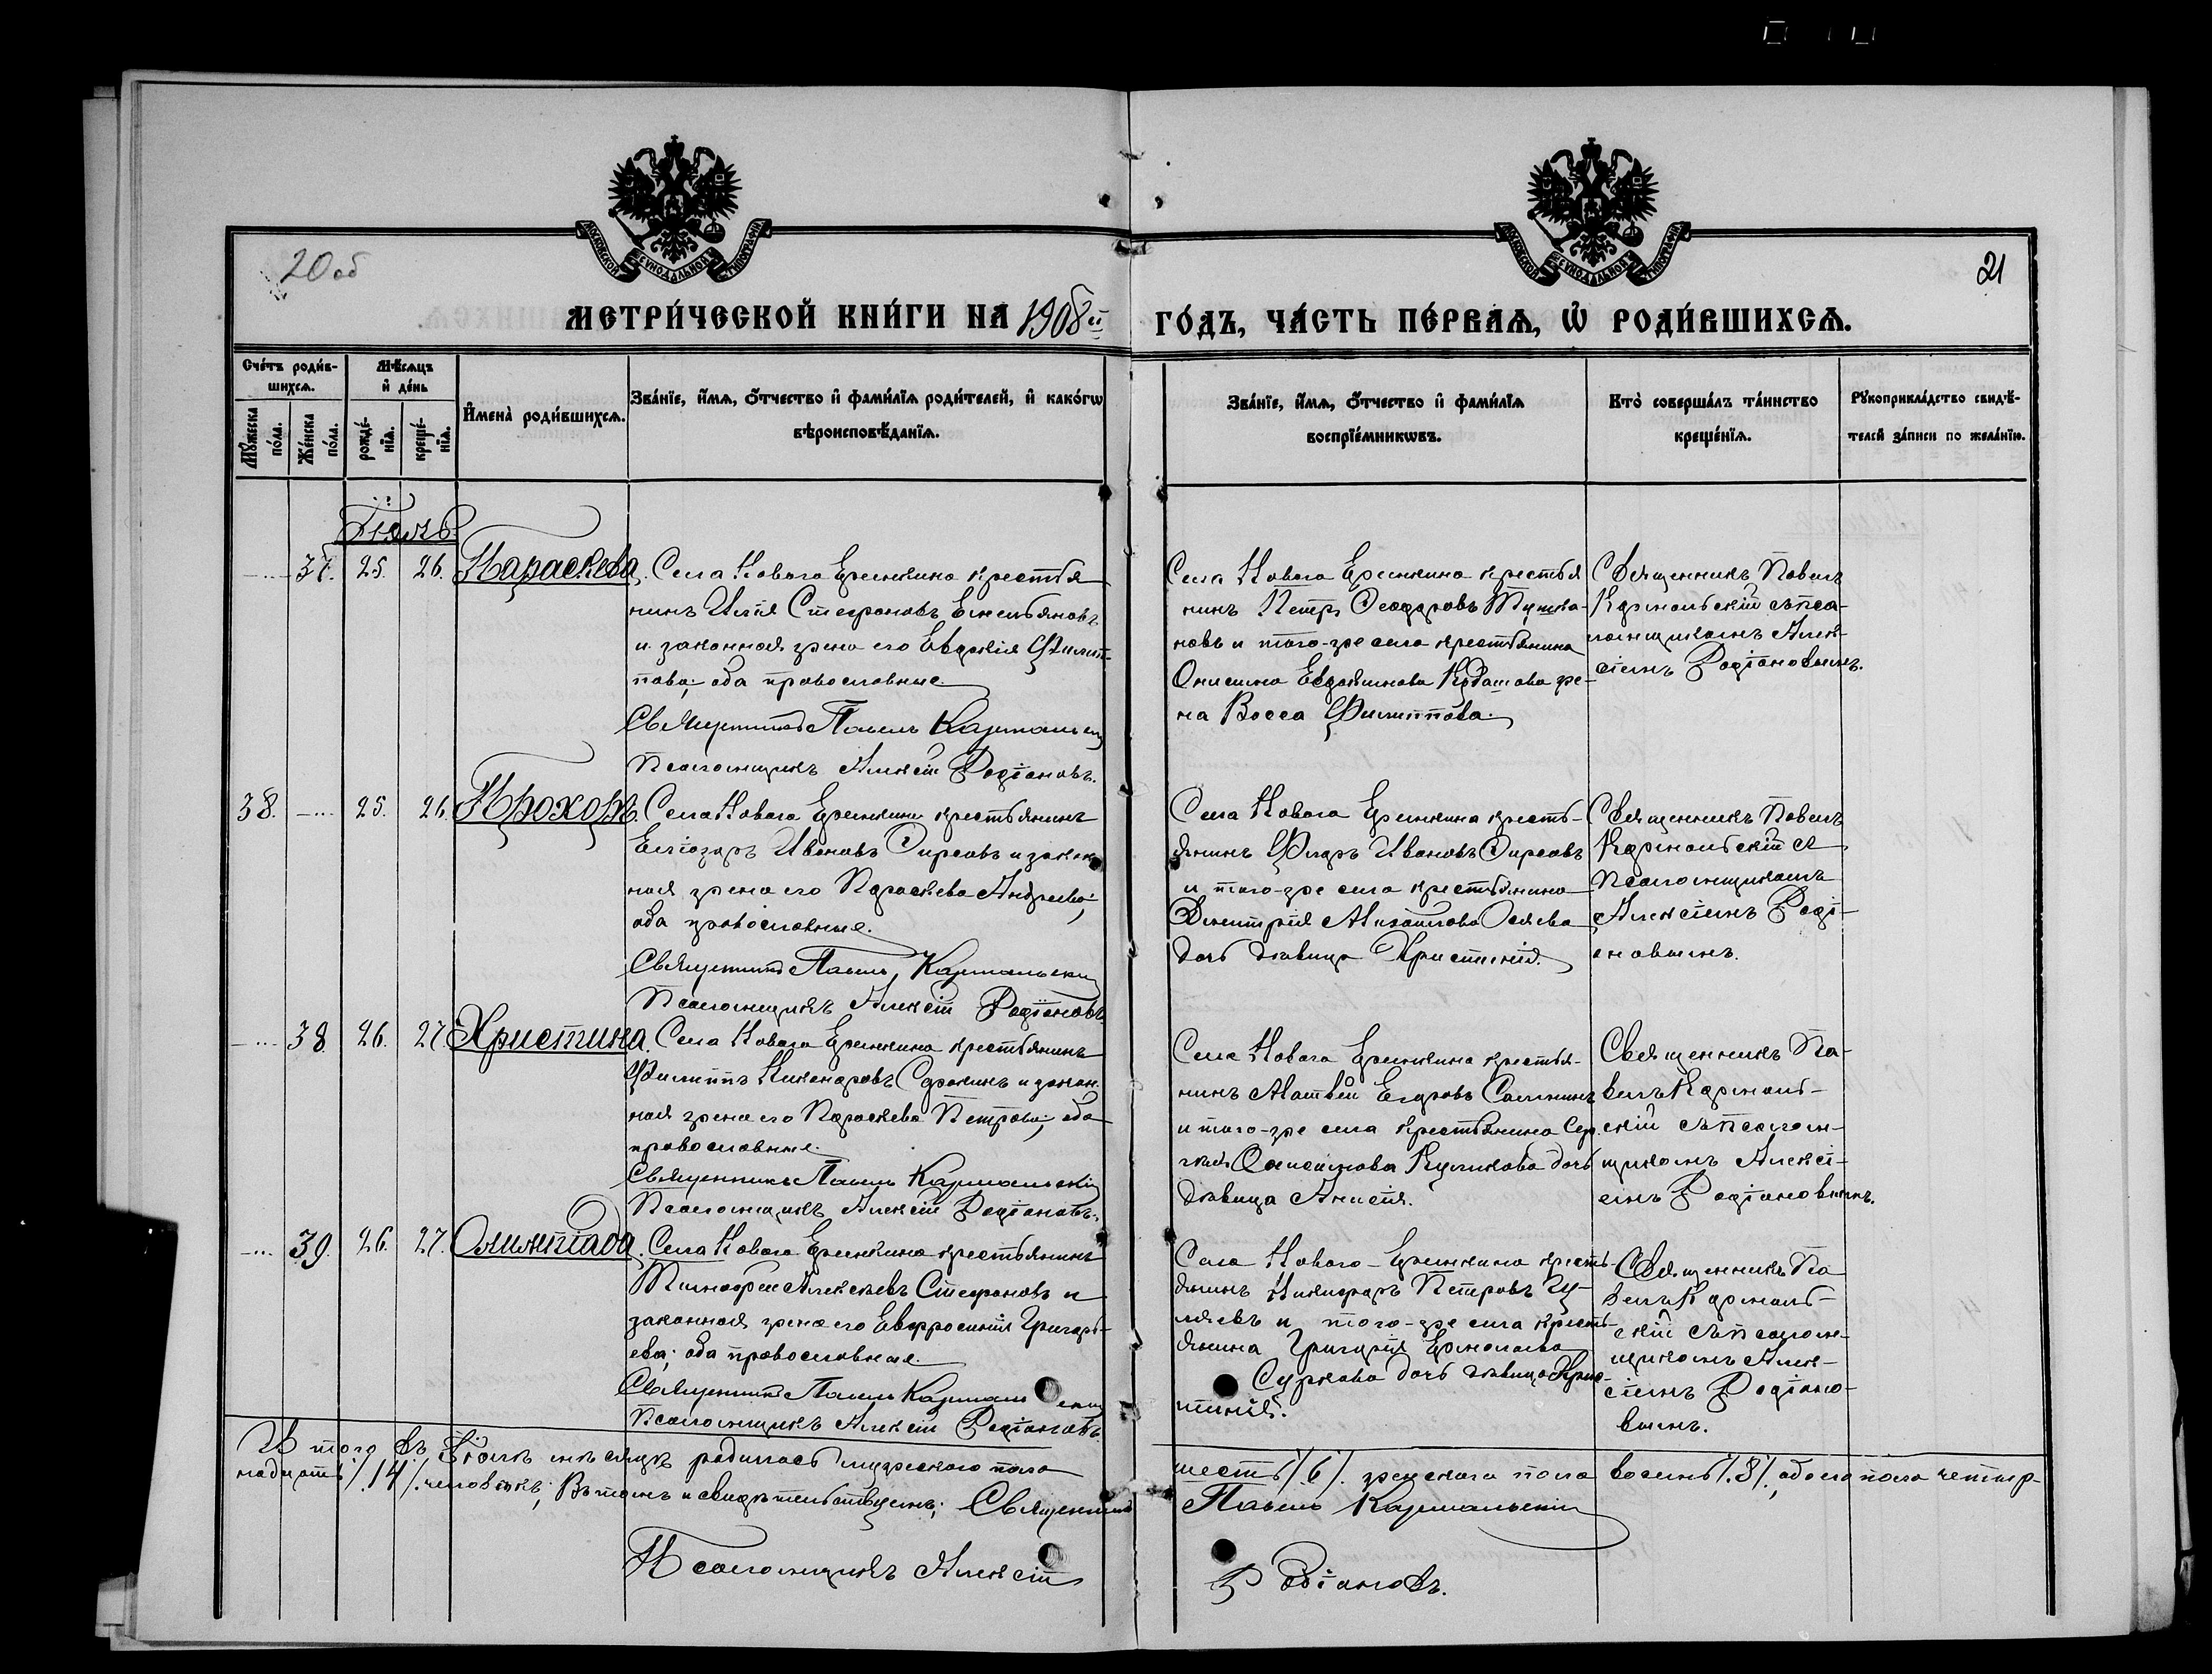 20 об
21
МОСКОВСКОЙ СѴНОДАЛЬНОЙ ТИПОГРАФІИ
МОСКОВСКОЙ СѴНОДАЛЬНОЙ ТИПОГРАФІИ
МЕТРИ́ЧЕСКОЙ КНИ́ГИ НА 1908й ГО́ДЪ, ЧА́СТЬ ПЕ́РВАѦ, Ѡ҆ РОДИ́ВШИХСѦ.
Сче́тъ роди́в-
шихсѧ.
Мꙋ́жеска по́ла.
Же́нска по́ла.
Мѣ́сѧцъ
и҆ де́нь
рожде́-
нїѧ.
креще́-
нїѧ.
И҆мена̀ роди́вшихсѧ.
Зва́нїе, и҆́мѧ, ѻ҆́тчество и҆ фами́лїѧ роди́телей, и҆ како́гѡ
вѣроисповѣ́данїѧ.
Зва́нїе, и҆́мѧ, ѻ҆́тчество и҆ фами́лїѧ
воспрїе́мникѡвъ.
Кто̀ соверша́лъ та́инство
креще́нїѧ.
Рꙋкоприкла́дство свидѣ́-
телей за́писи по жела́нїю.
Іюль
37. 25. 26. Параскева. Села Новаго Еремкина крестья
нинъ Илія Стефановъ Емельяновъ
и законная жена его Евдокія Филип-
пова; оба православные.
Священникъ Павелъ Кармальскій
Псаломщикъ Алексій Родіоновъ.
Села Новаго Еремкина крестья
нинъ Петръ Феодоровъ
новъ и того-же села крестьянина
Онисима Евдокимова же-
на Васса Филиппова.
Священникъ Павелъ
Кармальскій съ пса-
ломщикомъ Алек-
сіемъ Родіоновымъ.
38. 25. 26. Прохоръ. Села Новаго Еремкина крестьянинъ
Еліазаръ Ивановъ Фирсовъ и закон
ная жена его Параскева Андреева;
оба православные.
Священникъ Павелъ Кармальскій
Псаломщикъ Алексій Родіоновъ
Села Новаго Еремкина кресть-
янинъ Ѳедоръ Ивановъ Фирсовъ
и того-же села крестьянина
Димитрія Михайлова
дочь дѣвица Христинія.
Священникъ Павелъ
Кармальскій съ
Псаломщикомъ
Алексіемъ Роді-
оновымъ.
38. 26. 27. Христина. Села Новаго Еремкина крестьянинъ
Филиппъ Никаноровъ Сорокинъ и закон
ная жена его Параскева Петрова; оба
православные.
Священникъ Павелъ Кармальскій
Псаломщикъ Алексій Родіоновъ.
Села Новаго Еремкина крестья-
нинъ Матвей Егоровъ
и того-же села крестьянина Сер-
гія Куликова дочь
дѣвица Анисія.
Священникъ Па-
велъ Кармаль-
скій съ псалом-
щикомъ Алексі-
емъ Родіоновымъ.
39. 26. 27. Олимпіада. Села Новаго Еремкина крестьянинъ
Тимофей Алексѣевъ Стефановъ и
законная жена его Евфросинія Григорь-
ева; оба православные.
Священникъ Павелъ Кармальскій
Псаломщикъ Алексій Родіоновъ.
Села Новаго-Еремкина кресть-
янинъ Никифоръ Петровъ Гу-
ляевъ и того-же села кресть-
янина Григорія Ермолаева
Суркова дочь дѣвица Хрис-
тинія.
Священникъ Па
велъ Кармаль-
скій съ псалом-
щикомъ Алек-
сіемъ Родіоно-
вымъ.
Итого въ Іюлѣ мѣсяцѣ родилось мужескаго пола шесть /6/. женскаго пола восемь /.8/, обоего пола четыр-
надцать /.14/. человѣкъ; Въ томъ и свидѣтельствуемъ; Священникъ Павелъ Кармальскій
Псаломщикъ Алексій Родіоновъ.